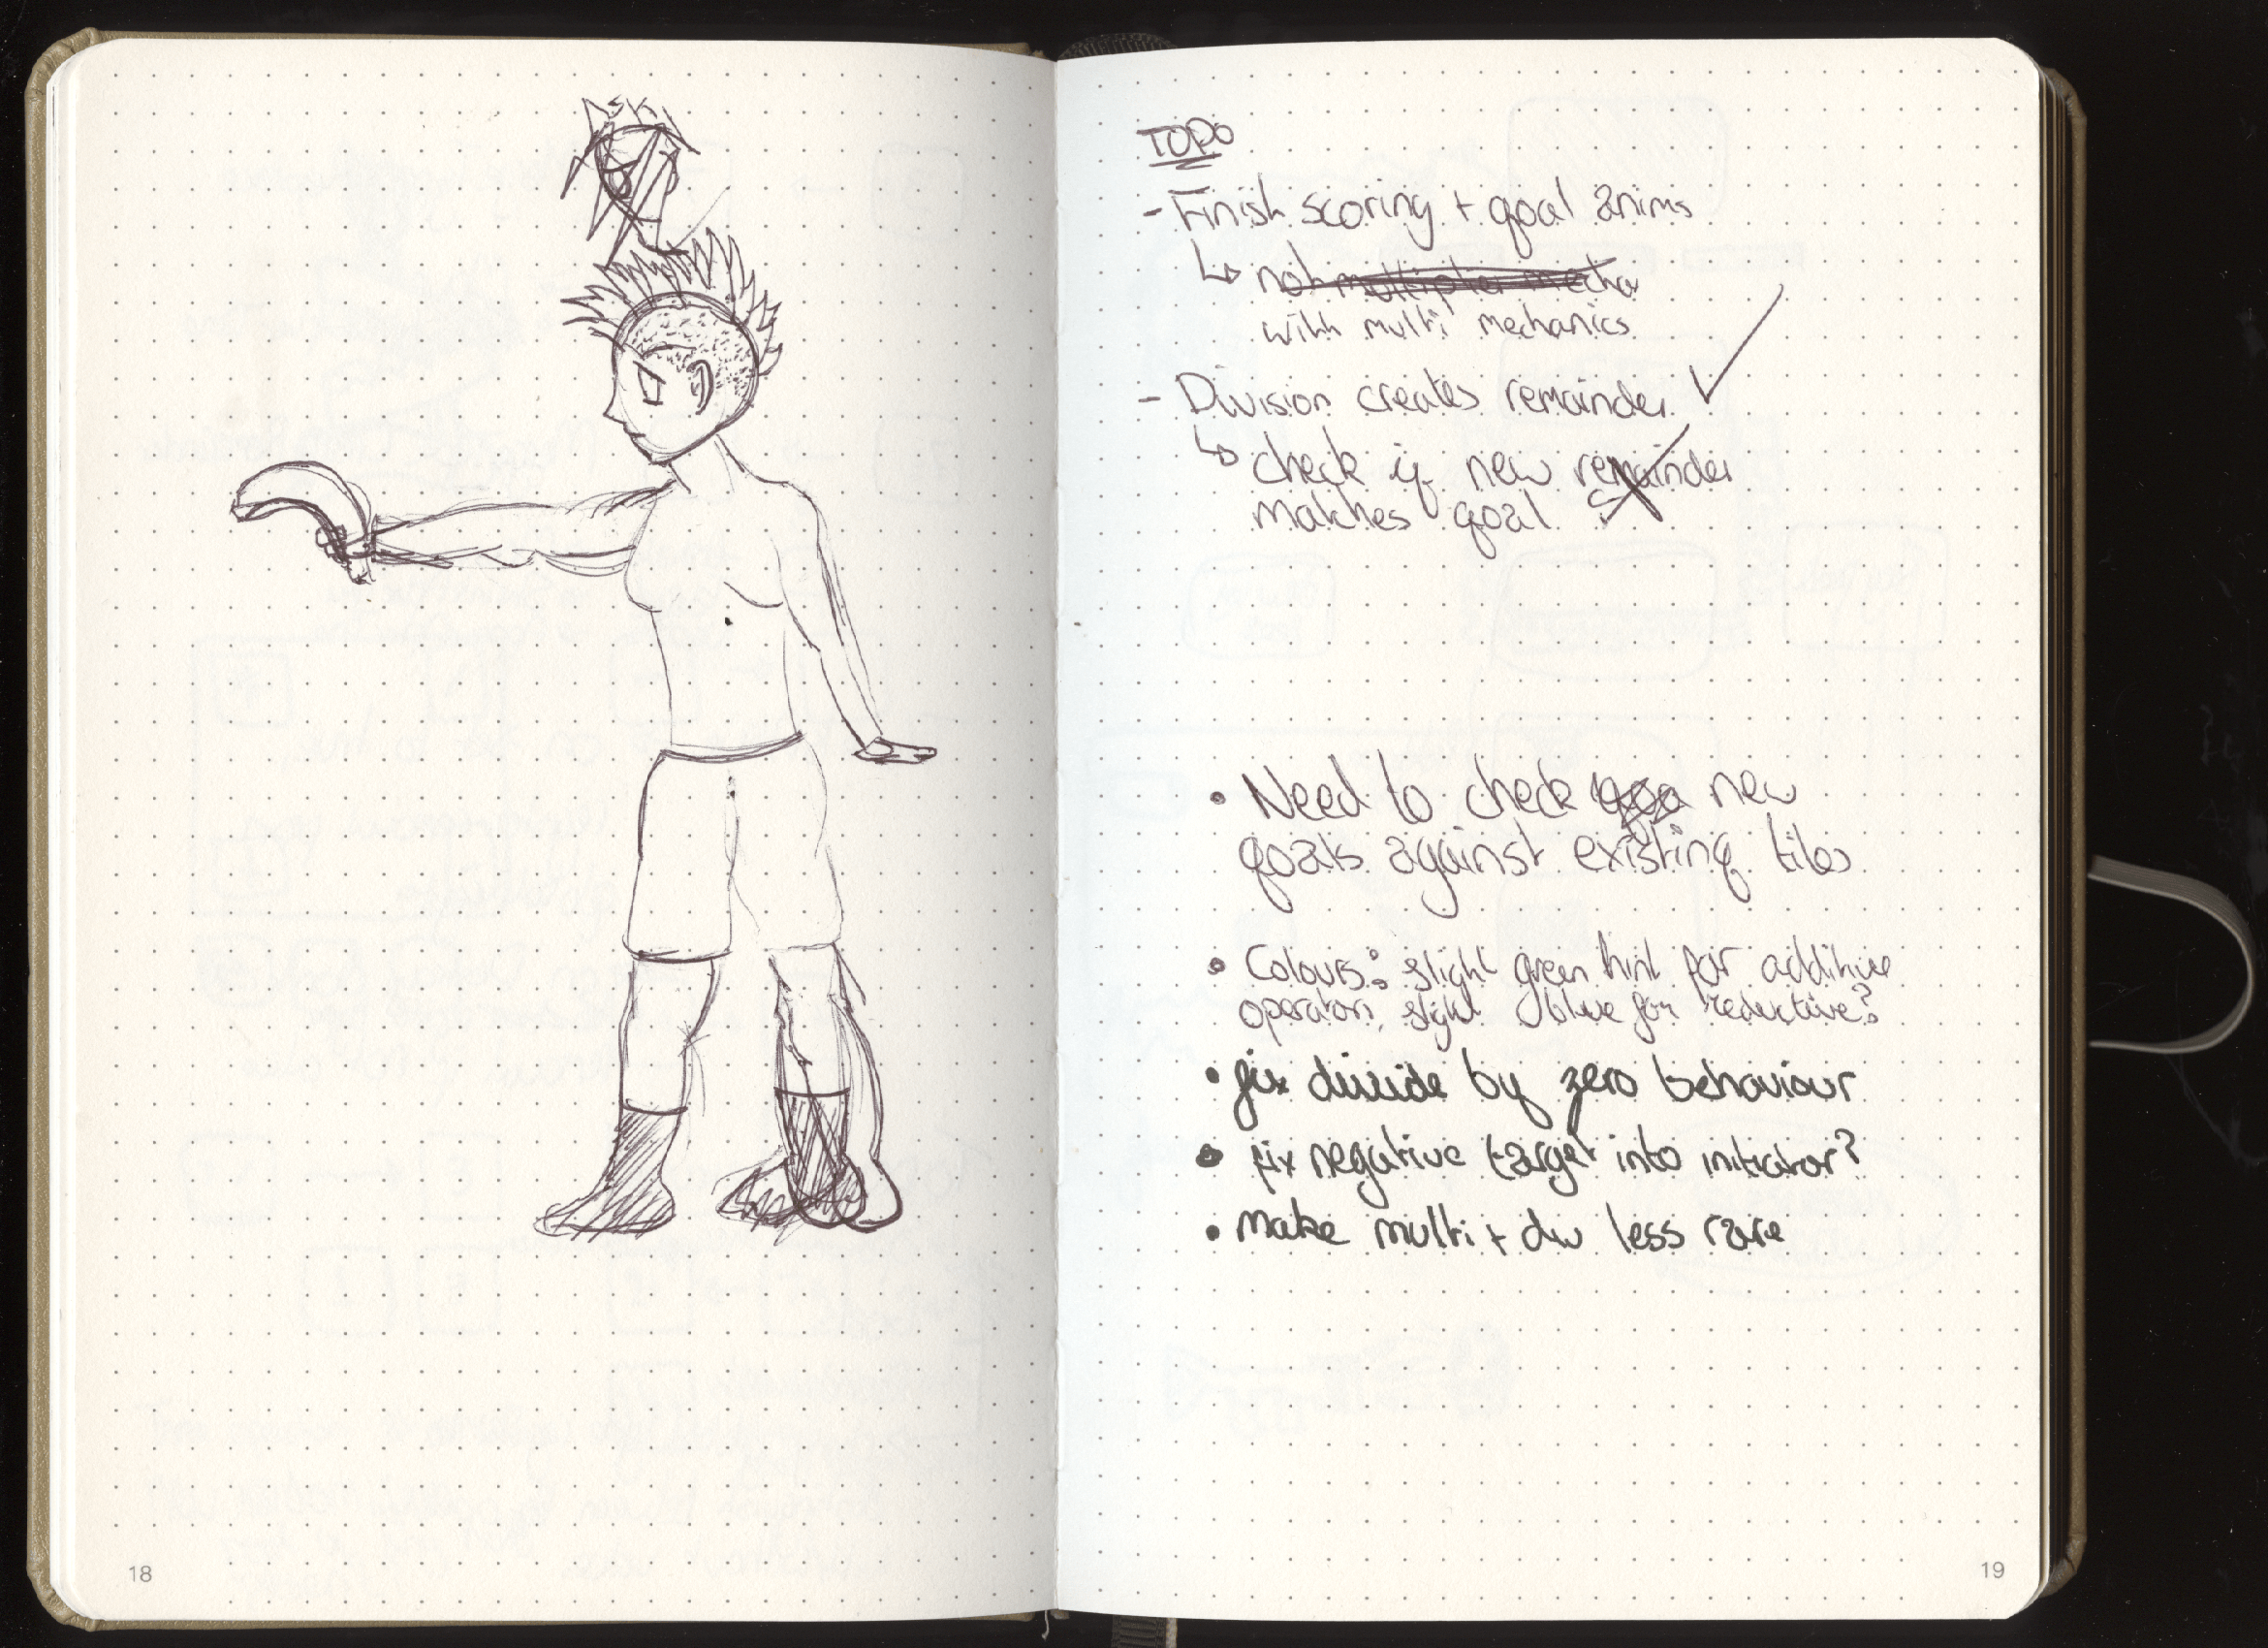 TODO
- Finish scoring + goal anims
↳ not multiplier mecha
with multi mechanics
- Division creates remainder ✓
↳ check if new remainder
matches goal
• Need to check goa new
goals against existing tiles
• Colours: slight green hint for additive
operators, slight blue for reductive?
• fix divide by zero behaviour
• fix negative target into initiator?
• Make multi + div less rare
18
19